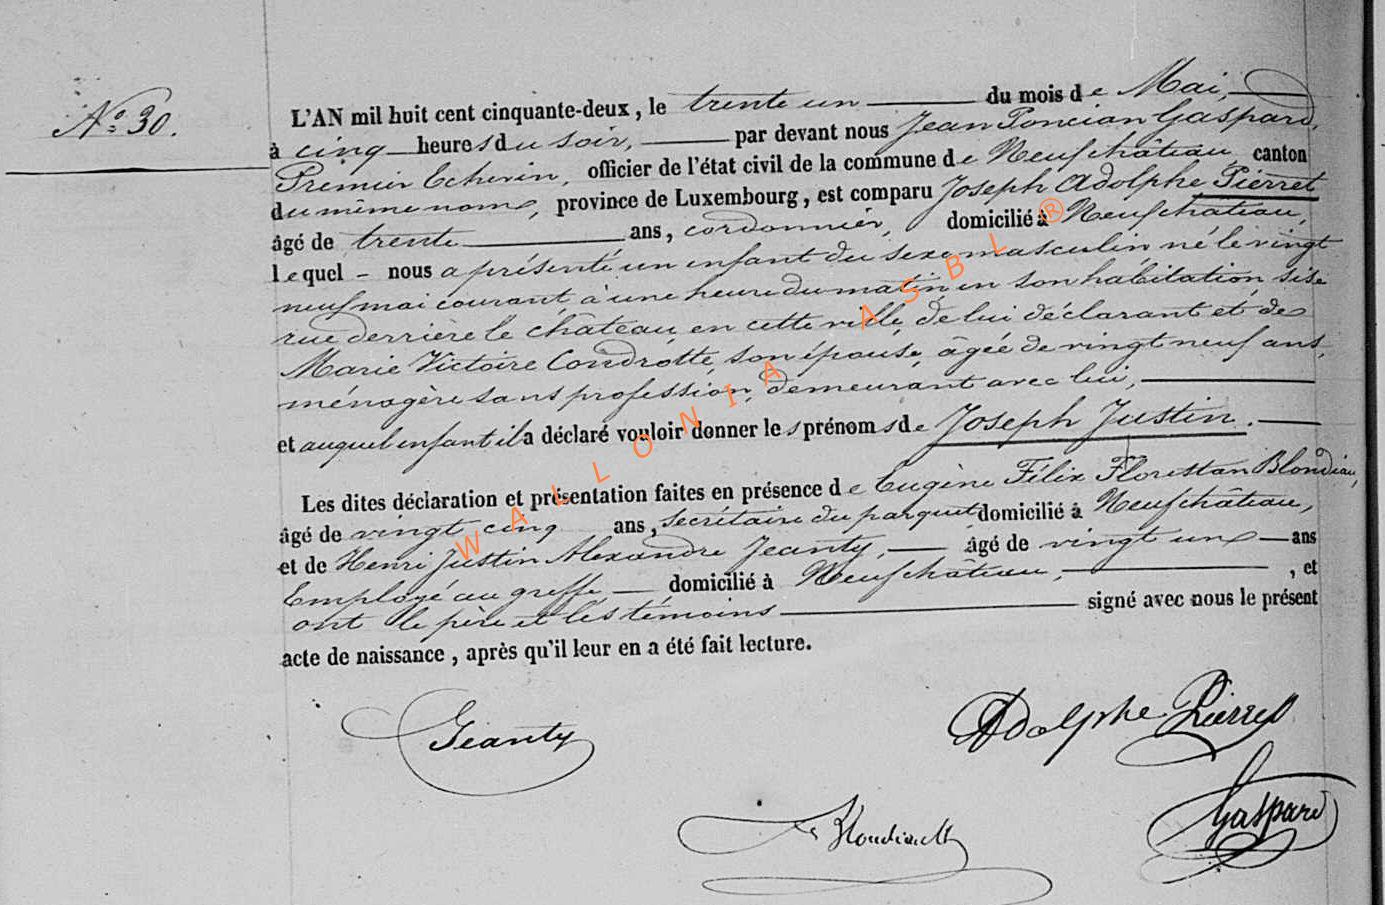 N.° 30.
L'AN mil huit cent cinquante-deux, le trente un du mois de Mai,
à cinq heures du soir, par devant nous Jean Poncian Gaspard,
Premier Echevin, officier de l'état civil de la commune de Neufchâteau, canton
du même nom, province de Luxembourg, est comparu Joseph Adolphe Pierret
âgé de trente ans, cordonnier, domicilié à Neufchateau,
lequel - nous a présenté un enfant du sexe masculin né le vingt
neuf mai courant à une heure du matin en son habitation sise
rue derrière le château, en cette ville, de lui déclarant et de
Marie Victoire Condrotte, son épouse, âgée de vingt neuf ans,
ménagère sans profession, demeurant avec lui,
et auquel enfant il a déclaré vouloir donner les prénoms de Joseph Justin.
Les dites déclaration et présentation faites en présence de Eugène Félix Florestan Blondiau,
âgé de vingt cinq ans, secrétaire du parquet, domicilié à Neufchâteau,
et de Henri Justin Alexandre Jeanty, âgé de vingt un ans
Employé au greffe, domicilié à Neufchâteau, , et
ont le père et les témoins signé avec nous le présent
acte de naissance, après qu'il leur en a été fait lecture.
Géanty
Adolphe Pierret
Gaspard
WALLONIA ASBL ®